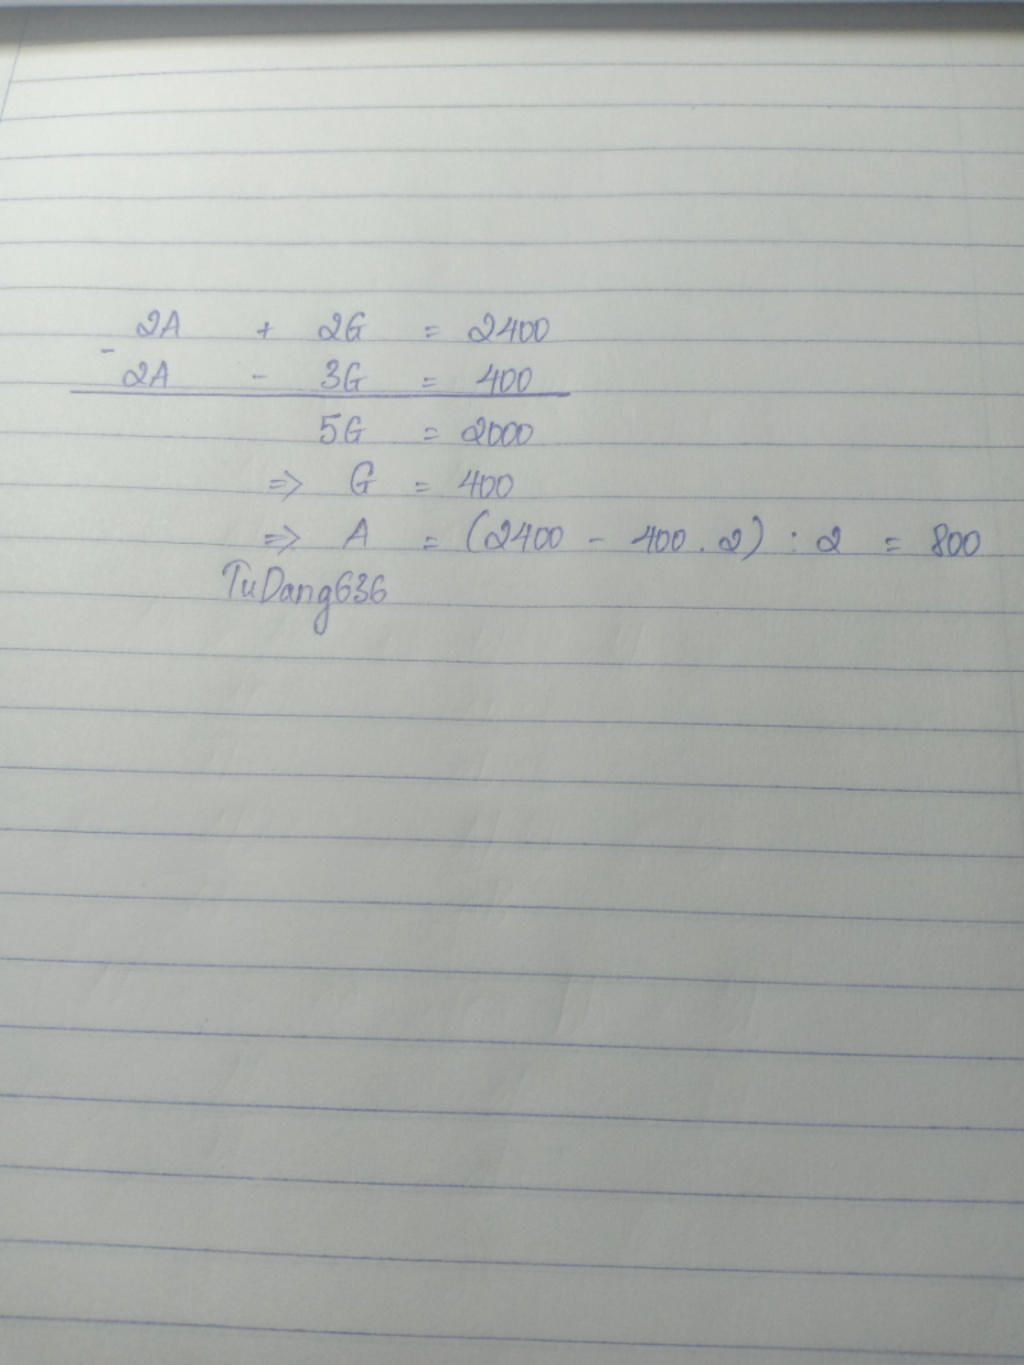 2A + 2G = 2400
-
2A - 3G = 400
5G = 2000
=> G = 400
=> A = (2400 - 400.2) : 2 = 800
TuDang636